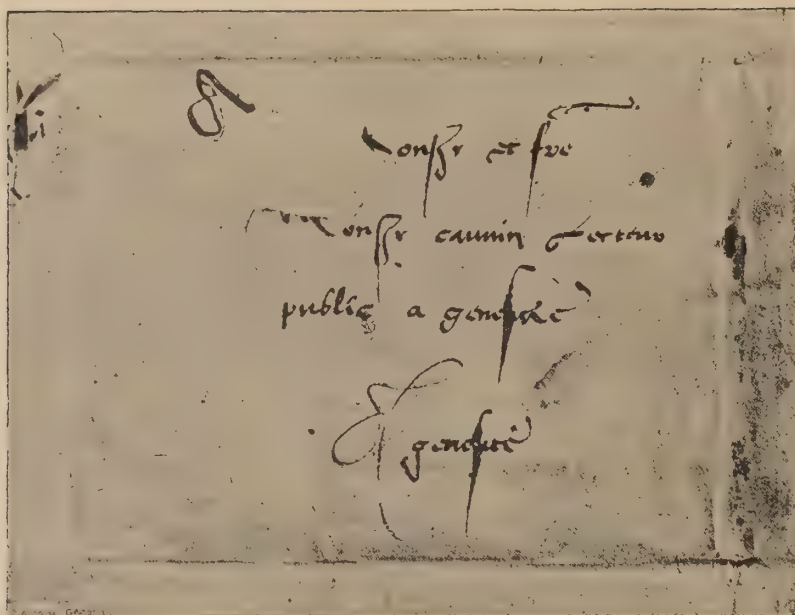 A
Monsr et frere
Monsr cauvin Lecteur
public a geneve
A geneve